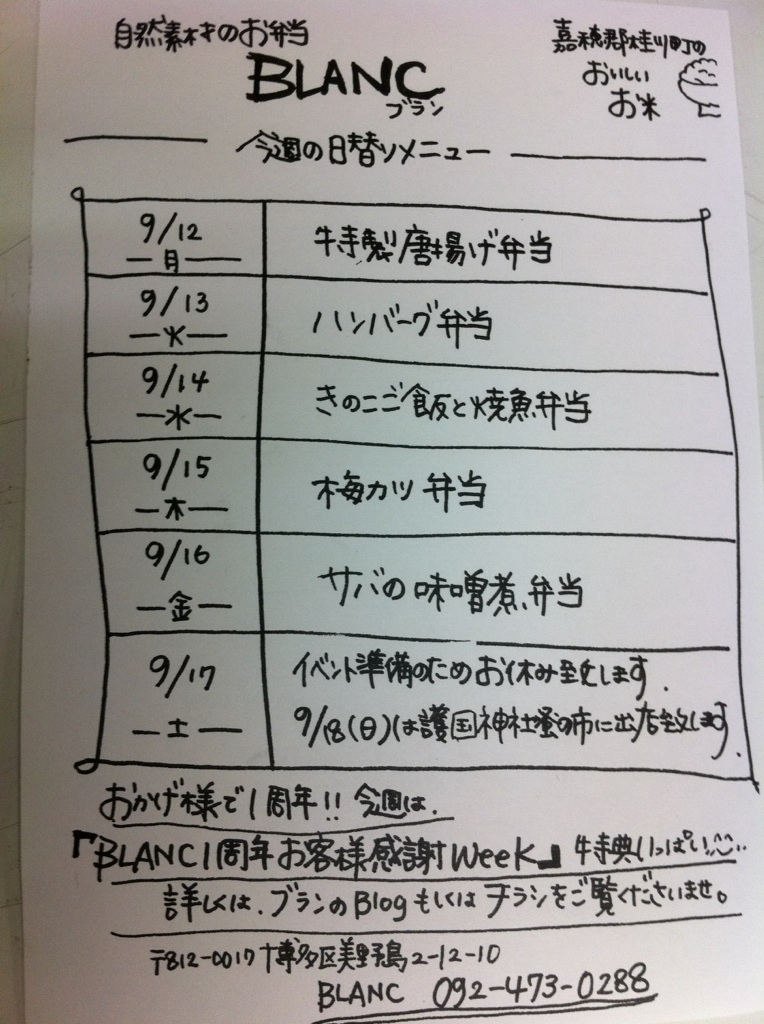 自然素材のお弁当
BLANC
ブラン
嘉穂郡桂川町の
おいしい
お米
今週の日替りメニュー
9/12
月
特製唐揚げ弁当
9/13
火
ハンバーグ弁当
9/14
水
きのこご飯と焼魚弁当
9/15
木
梅カツ弁当
9/16
金
サバの味噌煮弁当
9/17
土
イベント準備のためお休み致します.
9/18(日)は護国神社蚤の市に出店致します.
おかげ様で1周年!! 今週は.
『BLANC1周年お客様感謝Week』 特典いっぱい
詳しくは、ブランのBlogもしくはチラシをご覧くださいませ。
〒812-0017 博多区美野島2-12-10
BLANC 092-473-0288